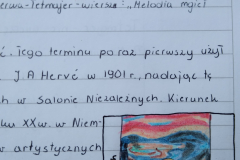 erwa-Tetmajer-wiersz: „Melodia mgieł
. Tego terminu po raz pierwszy użył
J. A Hervé w 1901 r., nadając tę
h w Salonie Niezależnych. Kierunek
ku XX w. w Niem-
w artystycznych